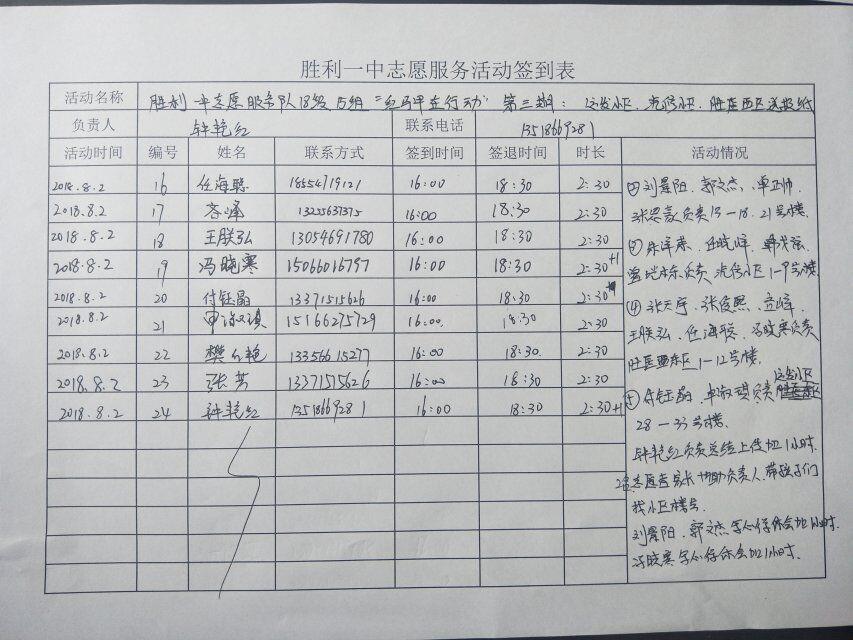 胜利一中志愿服务活动签到表
活动名称 胜利一中志愿服务队18级5组“红马甲在行动”第三期：
负责人 钟艳红 联系电话 13518669281
活动时间 编号 姓名 联系方式 签到时间 签退时间 时长 活动情况
2018.8.2 16 任海聪 18554719121 16:00 18:30 2:30
2018.8.2 17 13255637375 16:00 18:30 2:30
2018.8.2 18 王朕弘 13054691780 16:00 18:30 2:30
2018.8.2 19 冯晓寒 15066016797 16:00 18:30 2:30+1
2018.8.2 20 付钰晶 13371515626 16:00 18:30 2:30
2018.8.2 21 15166275729 16:00 18:30 2:30
2018.8.2 22 樊 艳 13356615277 16:00 18:30 2:30
2018.8.2 23 张芳 13371515626 16:00 18:30 2:30
2018.8.2 24 钟艳红 13518669281 16:00 18:30 2:30+1
②刘景阳、郭文杰、卓正帅、
负责13－18.21号楼
负责 小区1-9号楼
④张天宇、张俊熙、
王朕弘、任海聪、冯晓寒负责
1－12号楼。
付钰晶、 负责
28－33号楼
钟艳红负责总结上传加1小时
2名志愿者家长协助负责人，带孩子们
找小区楼号
刘景阳、郭文杰写心得体会加1小时
冯晓寒写心得体会加1小时.